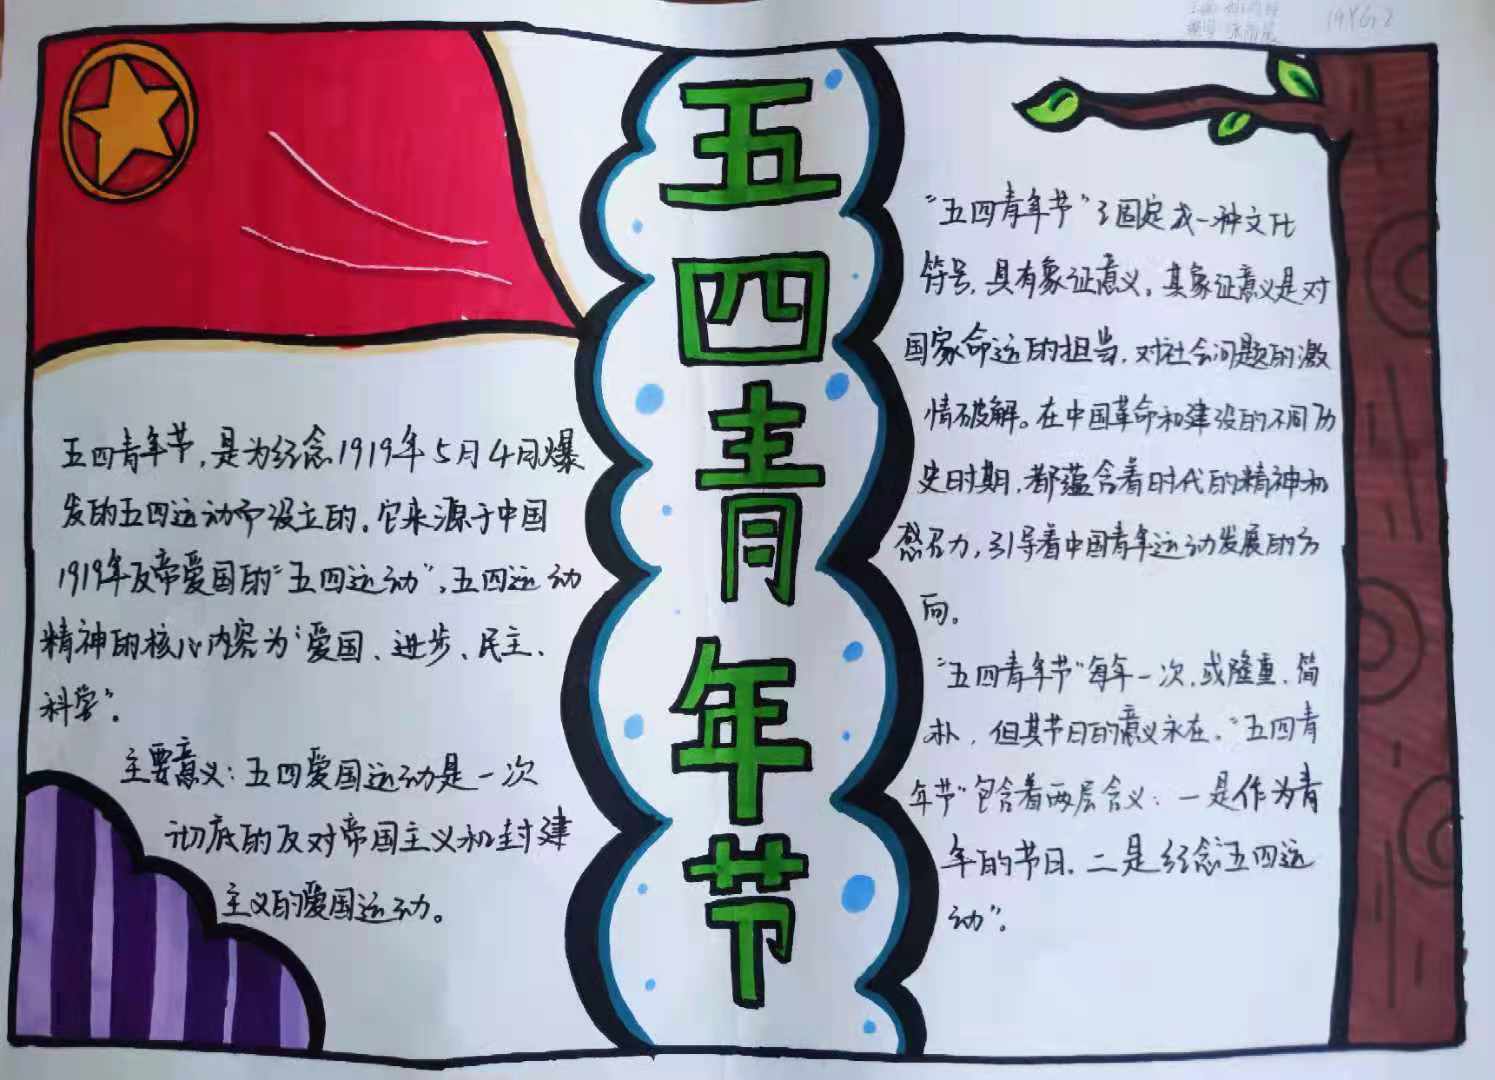 19YG2
五四青年节
五四青年节,是为纪念1919年5月4日爆
发的五四运动而设立的。它来源于中国
1919年反帝爱国的“五四运动”,五四运动
精神的核心内容为“爱国、进步、民主、
科学”。
主要意义:五四爱国运动是一次
彻底的反对帝国主义和封建
主义的爱国运动。
“五四青年节”已固定成一种文化
符号,具有象征意义。其象征意义是对
国家命运的担当,对社会问题的激
情破解。在中国革命和建设的不同历
史时期,都蕴含着时代的精神和
感召力,引导着中国青年运动发展的方
向。
“五四青年节”每年一次,或隆重,简
朴,但其节日的意义永在。“五四青
年节”包含着两层含义:一是作为青
年的节日,二是纪念“五四运
动”。